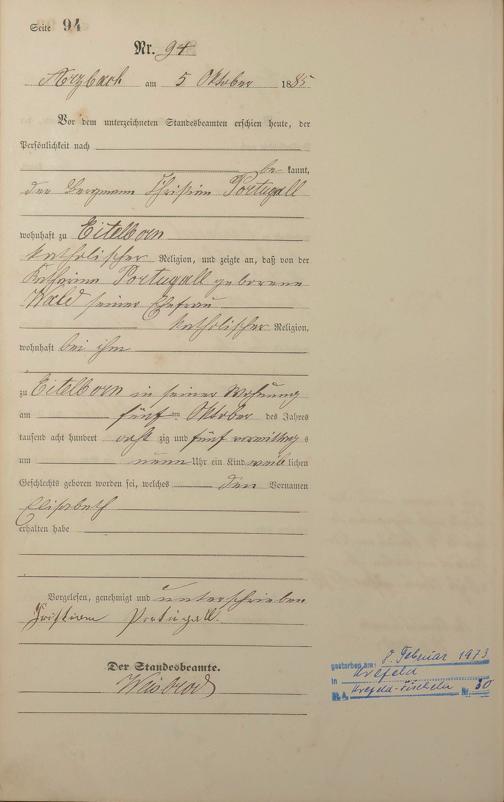 Seite 94
Nr. 94
Arzbach am 5 Oktober 1885
Vor dem unterzeichneten Standesbeamten erschien heute, der
Persönlichkeit nach
be kannt,
der Bergmann Christian Portugall
wohnhaft zu Eitelborn
katholischer Religion, und zeigte an, daß von der
Katharina Portugall geborene
Wald seiner Ehefrau
katholischer Religion,
wohnhaft bei ihm
zu Eitelborn in seiner Wohnung
am fünf ten Oktober des Jahres
tausend acht hundert acht zig und fünf vormittags
um neun Uhr ein Kind weib lichen
Geschlechts geboren worden sei, welches den Vornamen
Elisabeth
erhalten habe
Vorgelesen, genehmigt und unterschrieben
Christian Portugall.
Der Standesbeamte.
Weisbrod
gestorben am: 7. Februar 1973
in Krefeld
St.A. Krefeld-Fischeln Nr. 30